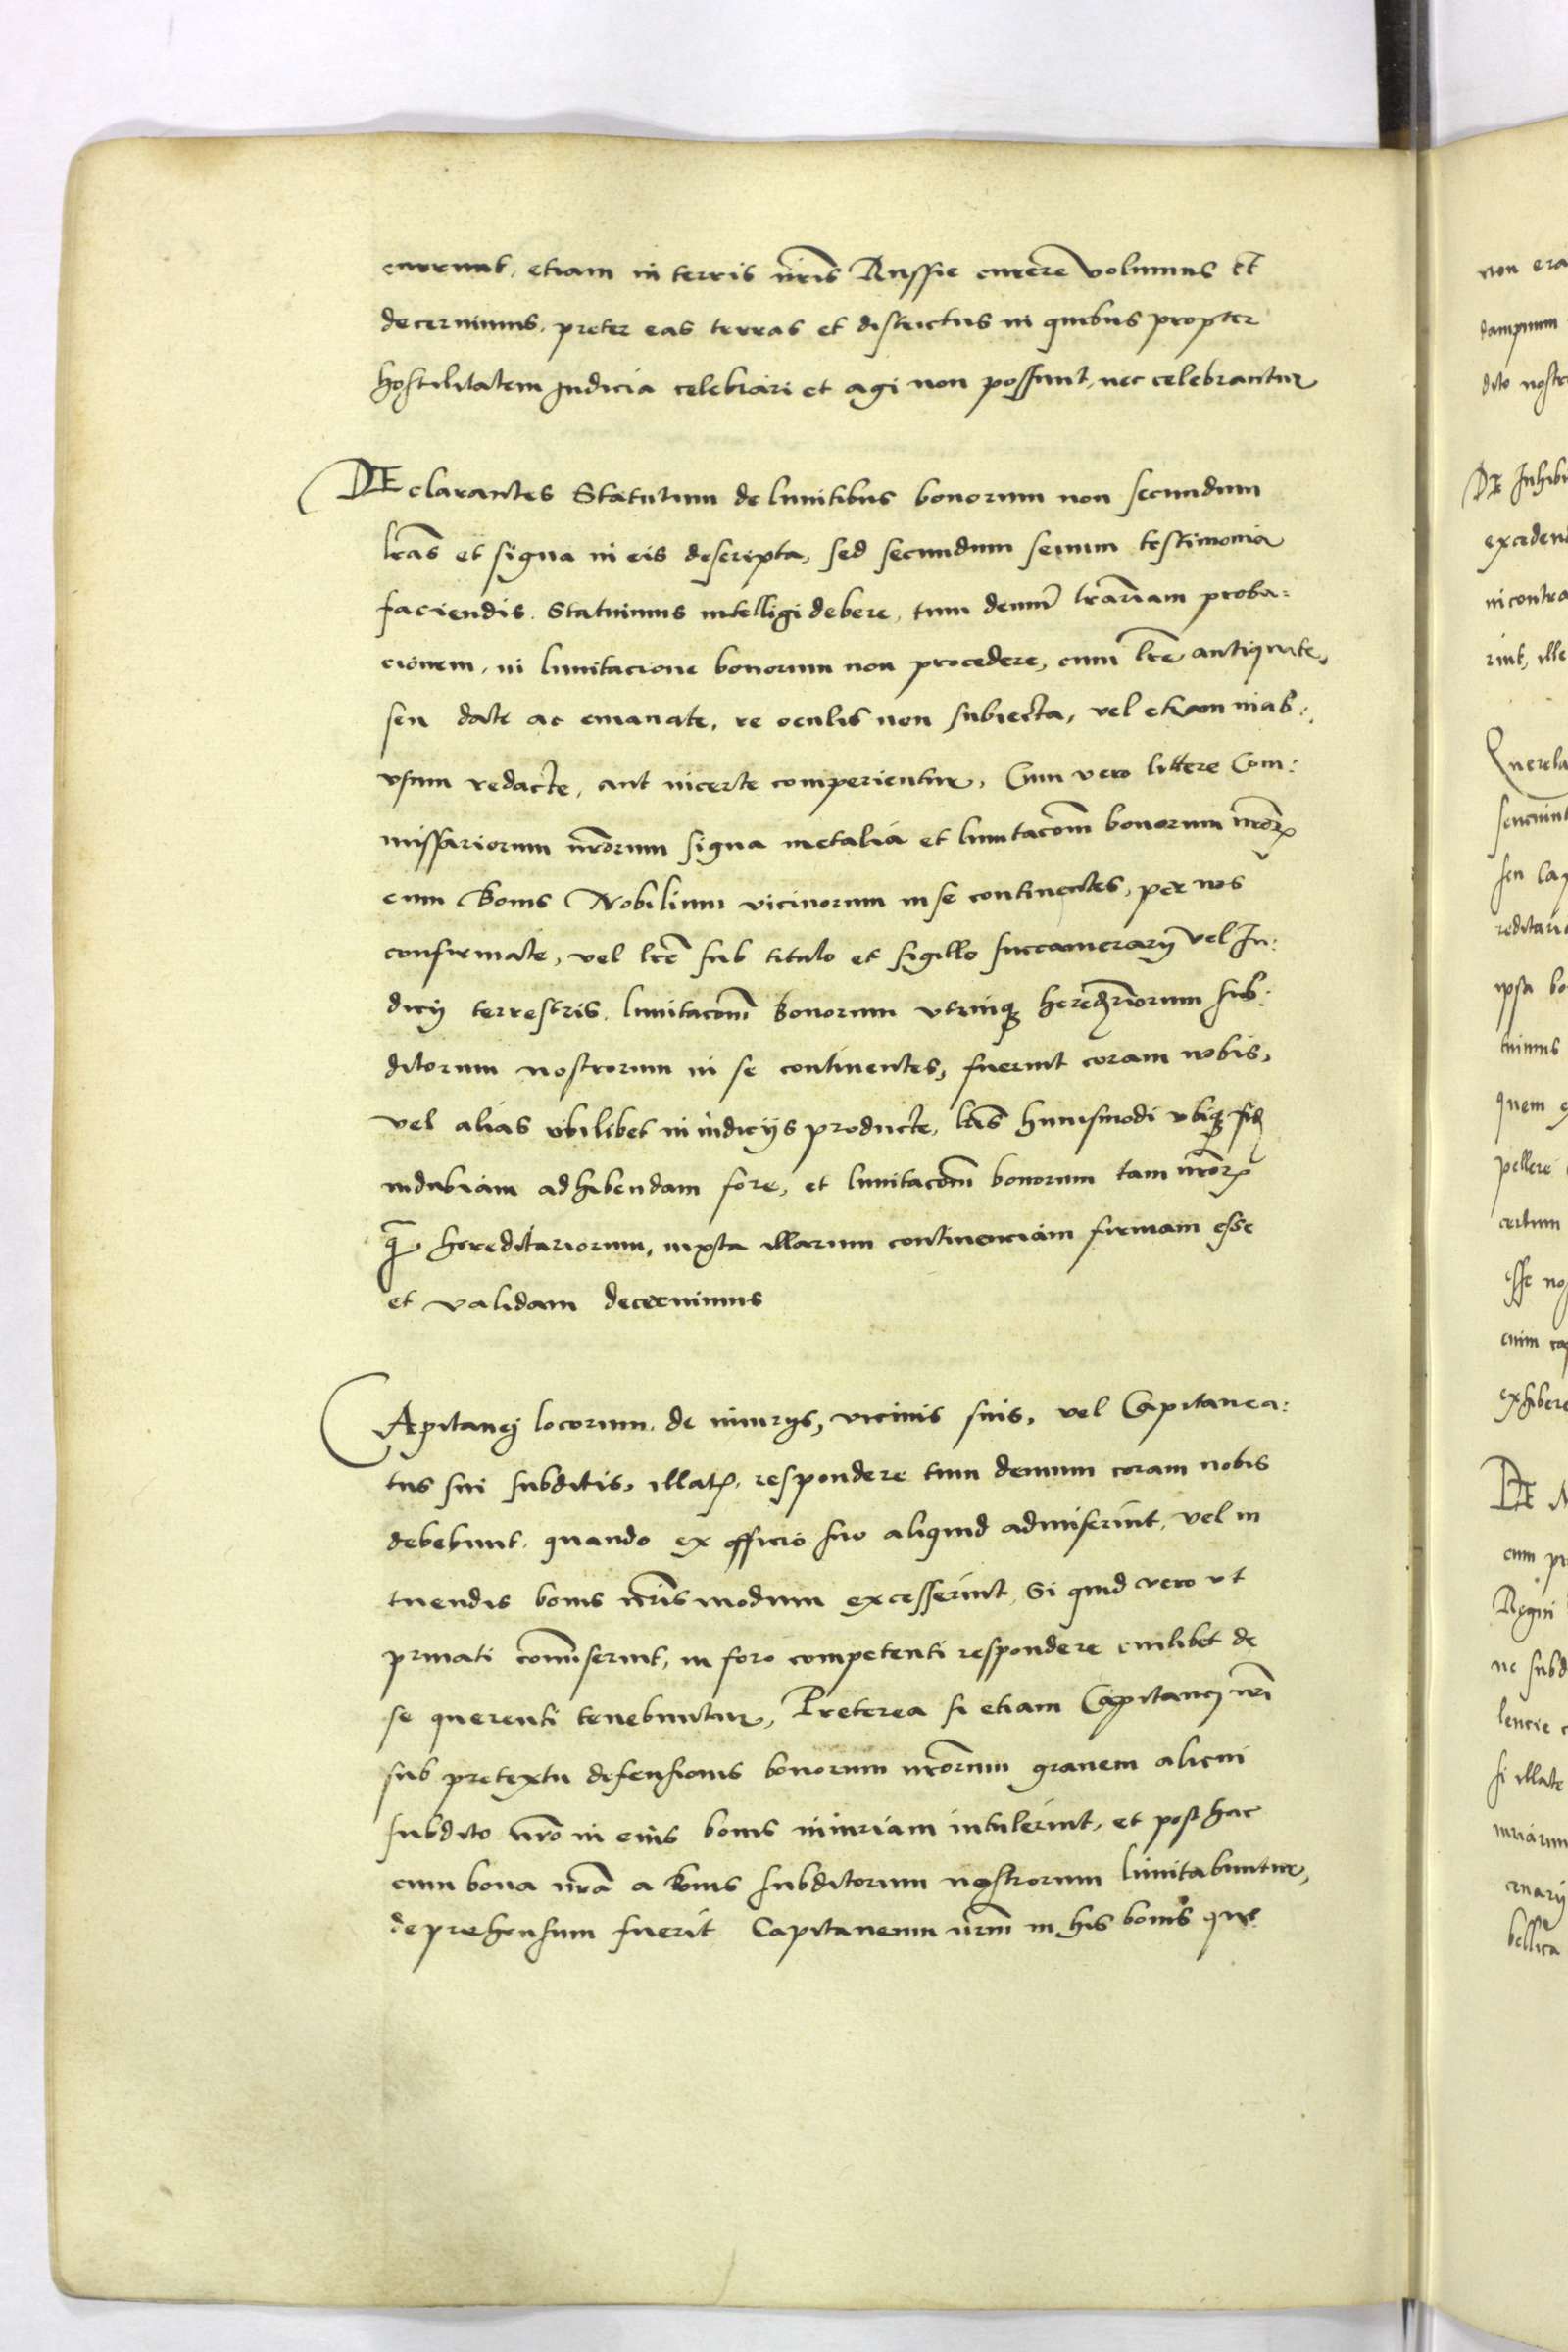 currunt, etiam in terris nr̃is Russie currere volumus Et
decernimus, preter eas terras et districtus in quibus propter
hostilitatem Iudicia celebrari et agi non possunt, nec celebrantur
DEclarantes Statutum de limitibus bonorum non secundum
lrãs et signa in eis descripta, sed secundum senum testimonia
faciendis. Statuimus intelligi debere, tum demũ lrãriam proba=
cionem, in limitacione bonorum non procedere, cum lrẽ antiquate,
seu date ac emanate, re oculis non subiecta, vel etiam in ab:
vsum redacte, aut incerte comperientur, Cum vero littere Com:
missariorum nr̃orum signa metalia et limitacõm bonorum nr̃orꝝ
cum bonis Nobilium vicinorum in se continentes, per nos
confirmate, vel lrẽ sub titulo et sigillo succamerarij vel Iu:
dicij terrestris, limitacõm bonorum vtrinqꝫ heredr̃iorum sub:
ditorum nostrorum in se continentes, fuerint coram nobis,
vel alias vbilibet in iudicijs producte, lrĩs huiusmodi vbiqꝫ fidẽ
indubiam adhibendam fore, et limitacõm bonorum tam nr̃orꝝ
q̃ hereditariorum, iuxta illarum continenciam firmam esse
et validam decernimus
CApitanej locorum, de iniurijs, vicinis suis, vel Capitanea:
tus sui subditis, illatꝭ, respondere tum demum coram nobis
debebunt, quando ex officio suo aliquid admiserint, vel in
tuendis bonis nr̃is modum excesserint, Si quid vero vt
priuati com̃iserint, in foro competenti respondere cuilibet de
se querenti tenebuntur, Preterea si etiam Capitanej nr̃i
sub pretextu defensionis bonorum nr̃orum grauem alicui
subdito nr̃o in eius bonis iniuriam intulerint, et post hac
cum bona nr̃a a bonis subditorum nostrorum limitabuntur,
deprehensum fuerit Capitaneum nr̃m in his bonis que